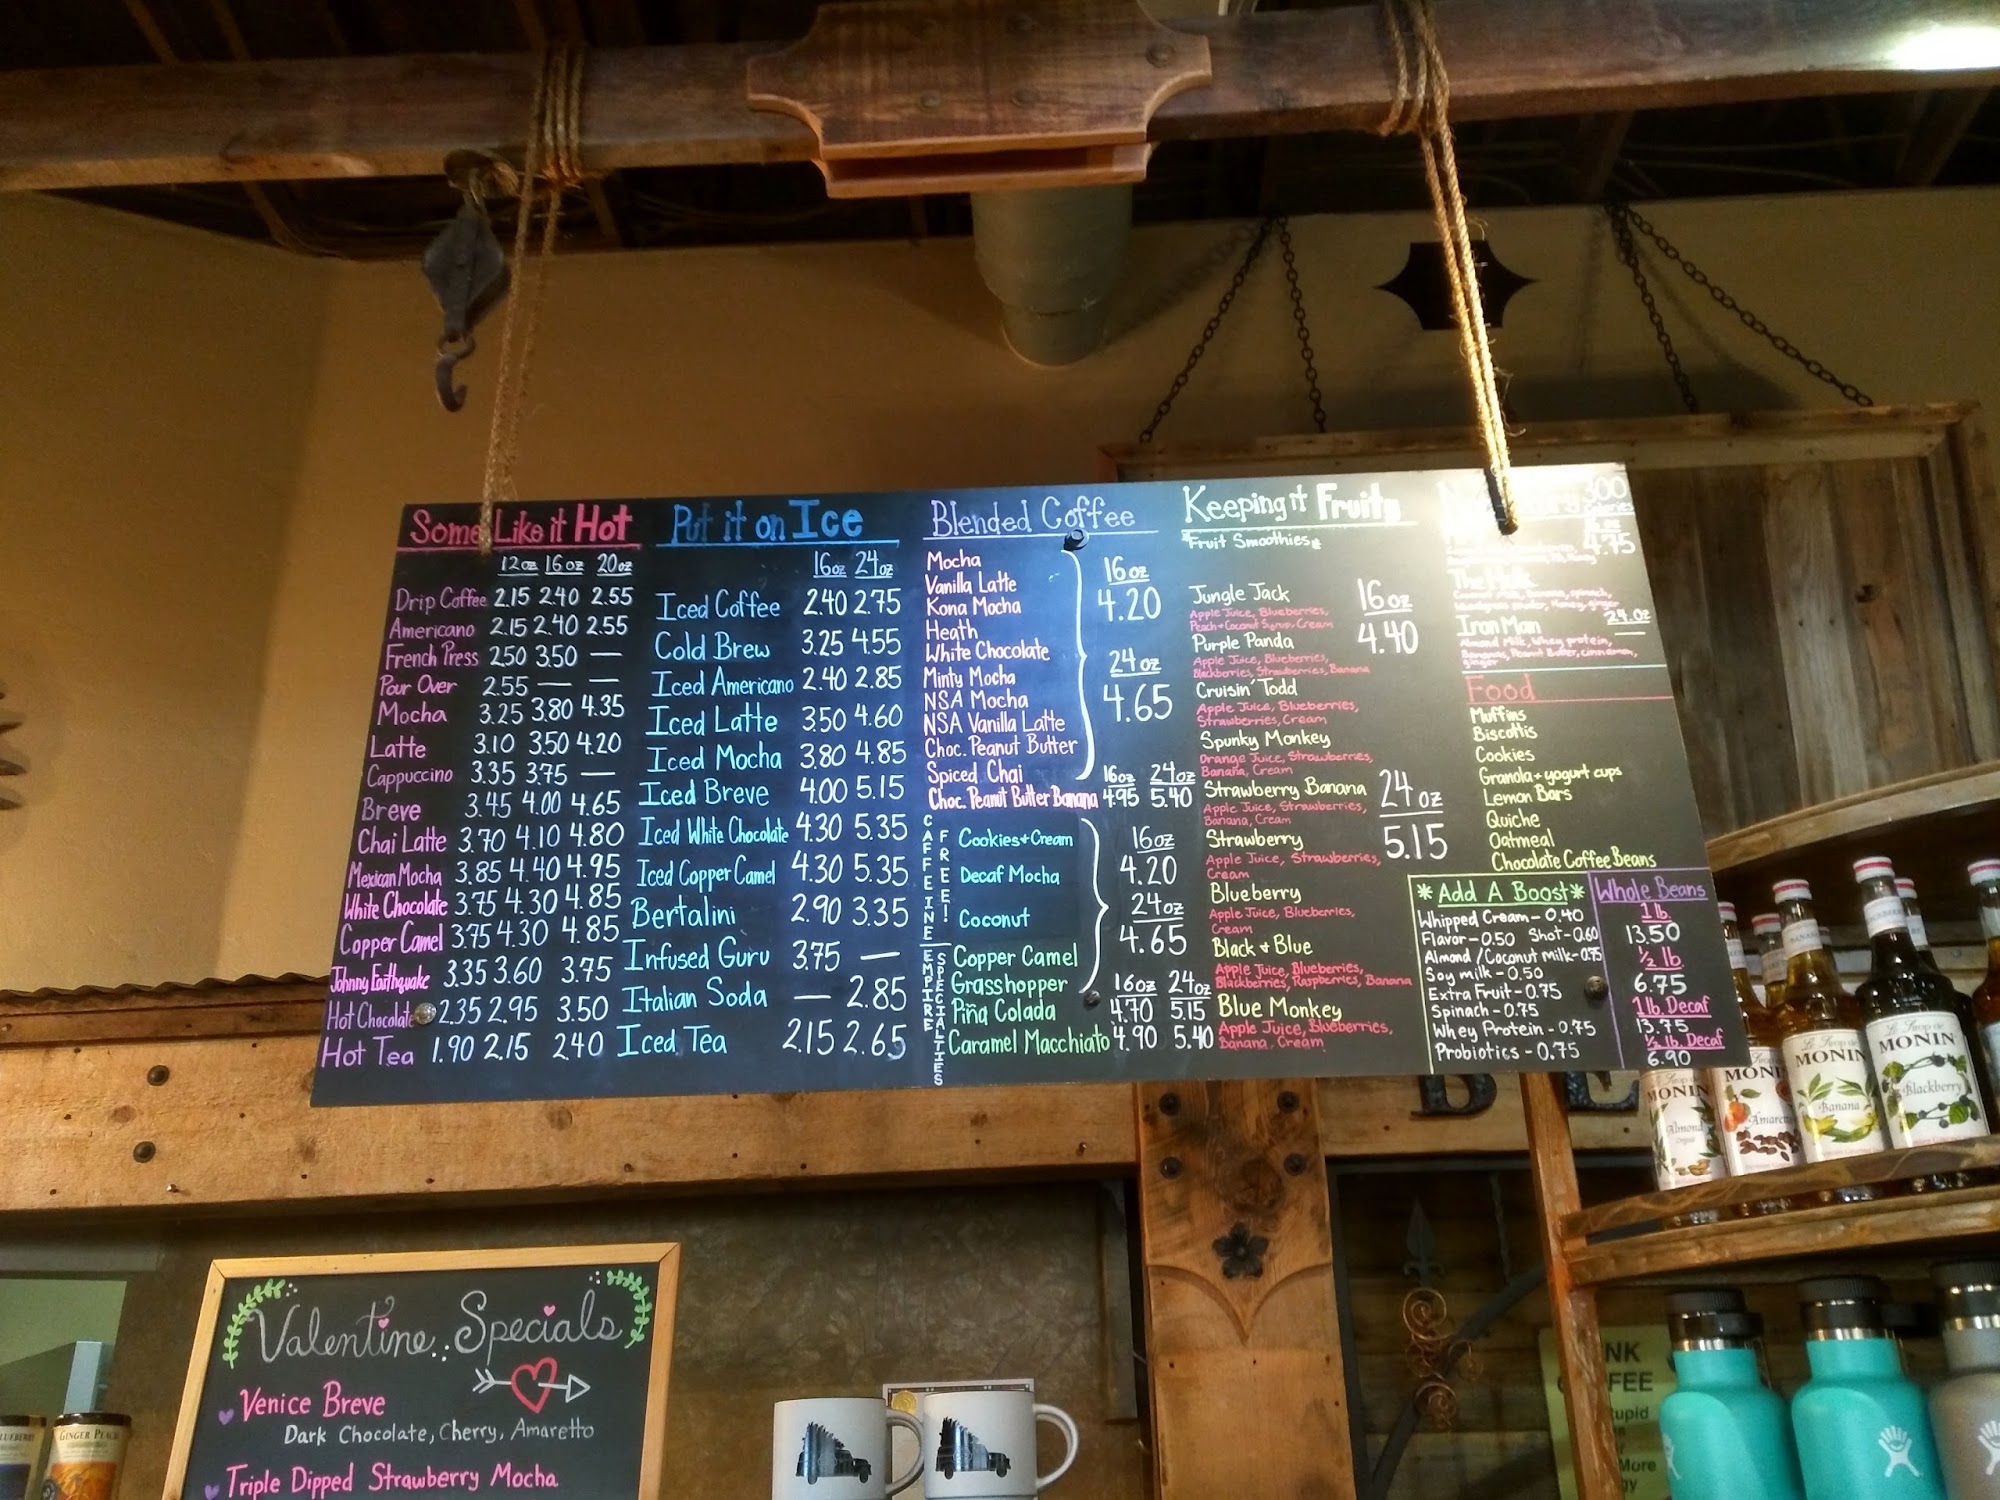 Some Like it Hot
12oz 16oz 20oz
Drip Coffee 2.15 2.40 2.55
Americano 2.15 2.40 2.55
French Press 2.50 3.50 —
Pour Over 2.55 — —
Mocha 3.25 3.80 4.35
Latte 3.10 3.50 4.20
Cappuccino 3.35 3.75 —
Breve 3.45 4.00 4.65
Chai Latte 3.70 4.10 4.80
Mexican Mocha 3.85 4.40 4.95
White Chocolate 3.75 4.30 4.85
Copper Camel 3.75 4.30 4.85
Johnny Earthquake 3.35 3.60 3.75
Hot Chocolate 2.35 2.95 3.50
Hot Tea 1.90 2.15 2.40
Put it on Ice
16oz 24oz
Iced Coffee 2.40 2.75
Cold Brew 3.25 4.55
Iced Americano 2.40 2.85
Iced Latte 3.50 4.60
Iced Mocha 3.80 4.85
Iced Breve 4.00 5.15
Iced White Chocolate 4.30 5.35
Iced Copper Camel 4.30 5.35
Bertalini 2.90 3.35
Infused Guru 3.75 —
Italian Soda — 2.85
Iced Tea 2.15 2.65
Blended Coffee
Mocha
Vanilla Latte
Kona Mocha
Heath
White Chocolate
Minty Mocha
NSA Mocha
NSA Vanilla Latte
Choc. Peanut Butter
Spiced Chai
16oz
4.20
24oz
4.65
16oz 24oz
Choc. Peanut Butter Banana 4.95 5.40
CAFFEINE FREE!
Cookies+Cream
Decaf Mocha
Coconut
16oz
4.20
24oz
4.65
EMPIRE SPECIALTIES
Copper Camel
Grasshopper
16oz 24oz
Piña Colada 4.70 5.15
Caramel Macchiato 4.90 5.40
Keeping it Fruity
*Fruit Smoothies*
16oz
4.40
24oz
5.15
Jungle Jack
Apple Juice, Blueberries,
Peach + Coconut Syrup, Cream
Purple Panda
Apple Juice, Blueberries,
Blackberries, Strawberries, Banana
Cruisin' Todd
Apple Juice, Blueberries,
Strawberries, Cream
Spunky Monkey
Orange Juice, Strawberries,
Banana, Cream
Strawberry Banana
Apple Juice, Strawberries,
Banana, Cream
Strawberry
Apple Juice, Strawberries,
Cream
Blueberry
Apple Juice, Blueberries,
Cream
Black + Blue
Apple Juice, Blueberries,
Blackberries, Raspberries, Banana
Blue Monkey
Apple Juice, Blueberries,
Banana, Cream
300
16 oz
4.75
The Hulk
Coconut Milk, banana, spinach,
Honey, ginger
Iron Man 24oz —
Almond Milk, Whey protein,
Bananas, Peanut Butter, cinnamon,
ginger
Food
Muffins
Biscottis
Cookies
Granola + yogurt cups
Lemon Bars
Quiche
Oatmeal
Chocolate Coffee Beans
*Add A Boost*
Whipped Cream - 0.40
Flavor - 0.50 Shot - 0.60
Almond/Coconut milk - 0.75
Soy milk - 0.50
Extra Fruit - 0.75
Spinach - 0.75
Whey Protein - 0.75
Probiotics - 0.75
Whole Beans
1 lb.
13.50
1/2 lb
6.75
1 lb. Decaf
13.75
1/2 lb. Decaf
6.90
Valentine Specials
Venice Breve
Dark Chocolate, Cherry, Amaretto
Triple Dipped Strawberry Mocha
GINGER PEACH
MONIN
Almond
MONIN
MONIN
Banana
Le Sirop de
MONIN
Blackberry